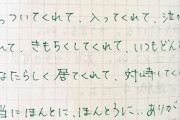 っついてくれて、入ってくれて、
れて、きもちくしてくれて、いつもどん
なたらしく居てくれて、対峙していく
当にほんとに、ほんとうに…ありが